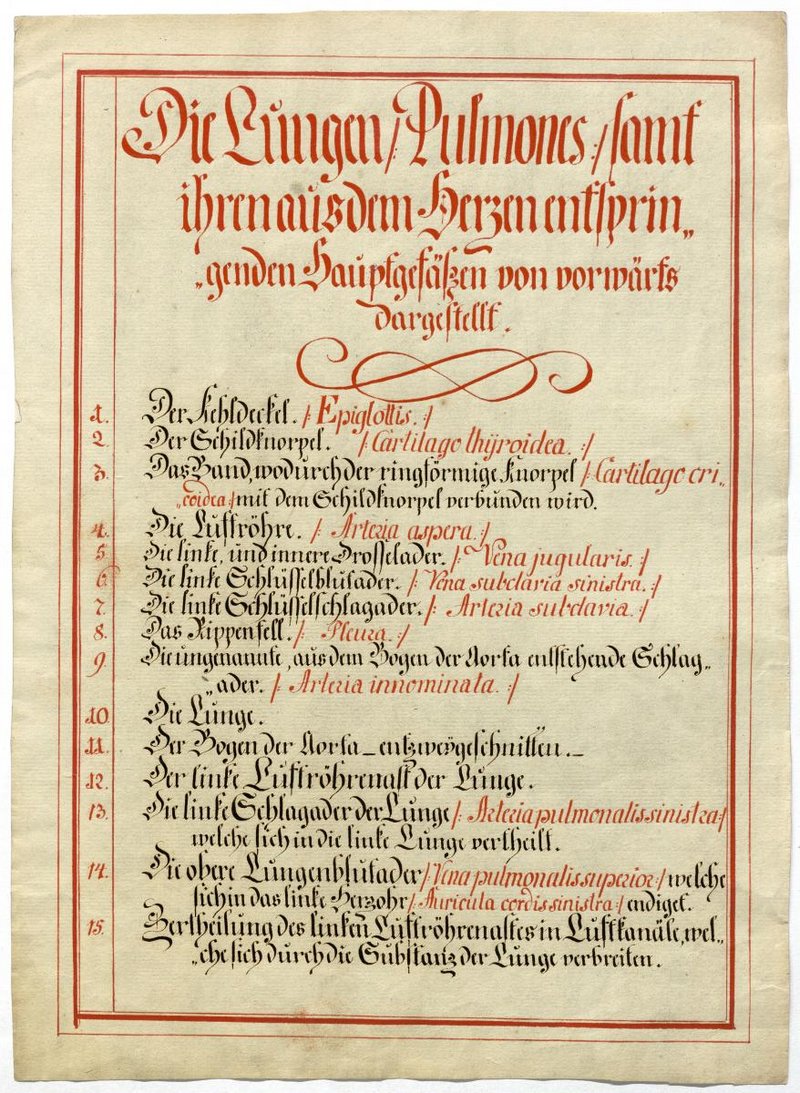 Die Lungen /: Pulmones :/ samt
ihren aus dem Herzen entsprin„
„genden Hauptgefäßen von vorwärts
dargestellt.
1. Der Kehldeckel. /: Epiglottis. :/
2. Der Schildknorpel. /: Cartilago thÿroidea. :/
3. Das Band, wodurch der ringförmige Knorpel /: Cartilago cri„
„coidea :/ mit dem Schildknorpel verbunden wird.
4. Die Luftröhre. /: Arteria aspera. :/
5. Die linke, und innere Drosselader. /: Vena jugularis. :/
6. Die linke Schlüsselblutader. /: Vena subclaria sinistra. :/
7. Die linke Schlüsselschlagader. /: Arteria subclavia. :/
8. Das Rippenfell. /: Pleura. :/
9. Die ungenannte, aus dem Bogen der Aorta entstehende Schlag„
„ader. /: Arteria innominata. :/
10. Die Lunge.
11. Der Bogen der Aorta _ entzweÿgeschnitten. _
12. Der linke Luftröhrenast der Lunge.
13. Die linke Schlagader der Lunge /: Arteria pulmonalis sinistra :/
welche sich in die linke Lunge vertheilt.
14. Die obere Lungenblutader /: Vena pulmonalis superior :/ welche
sich in das linke Herzohr /: Auricula cordis sinistra :/ endiget.
15. Zertheilung des linken Luftröhrenastes in Luftkanäle, wel„
„che sich durch die Substanz der Lunge verbreiten.